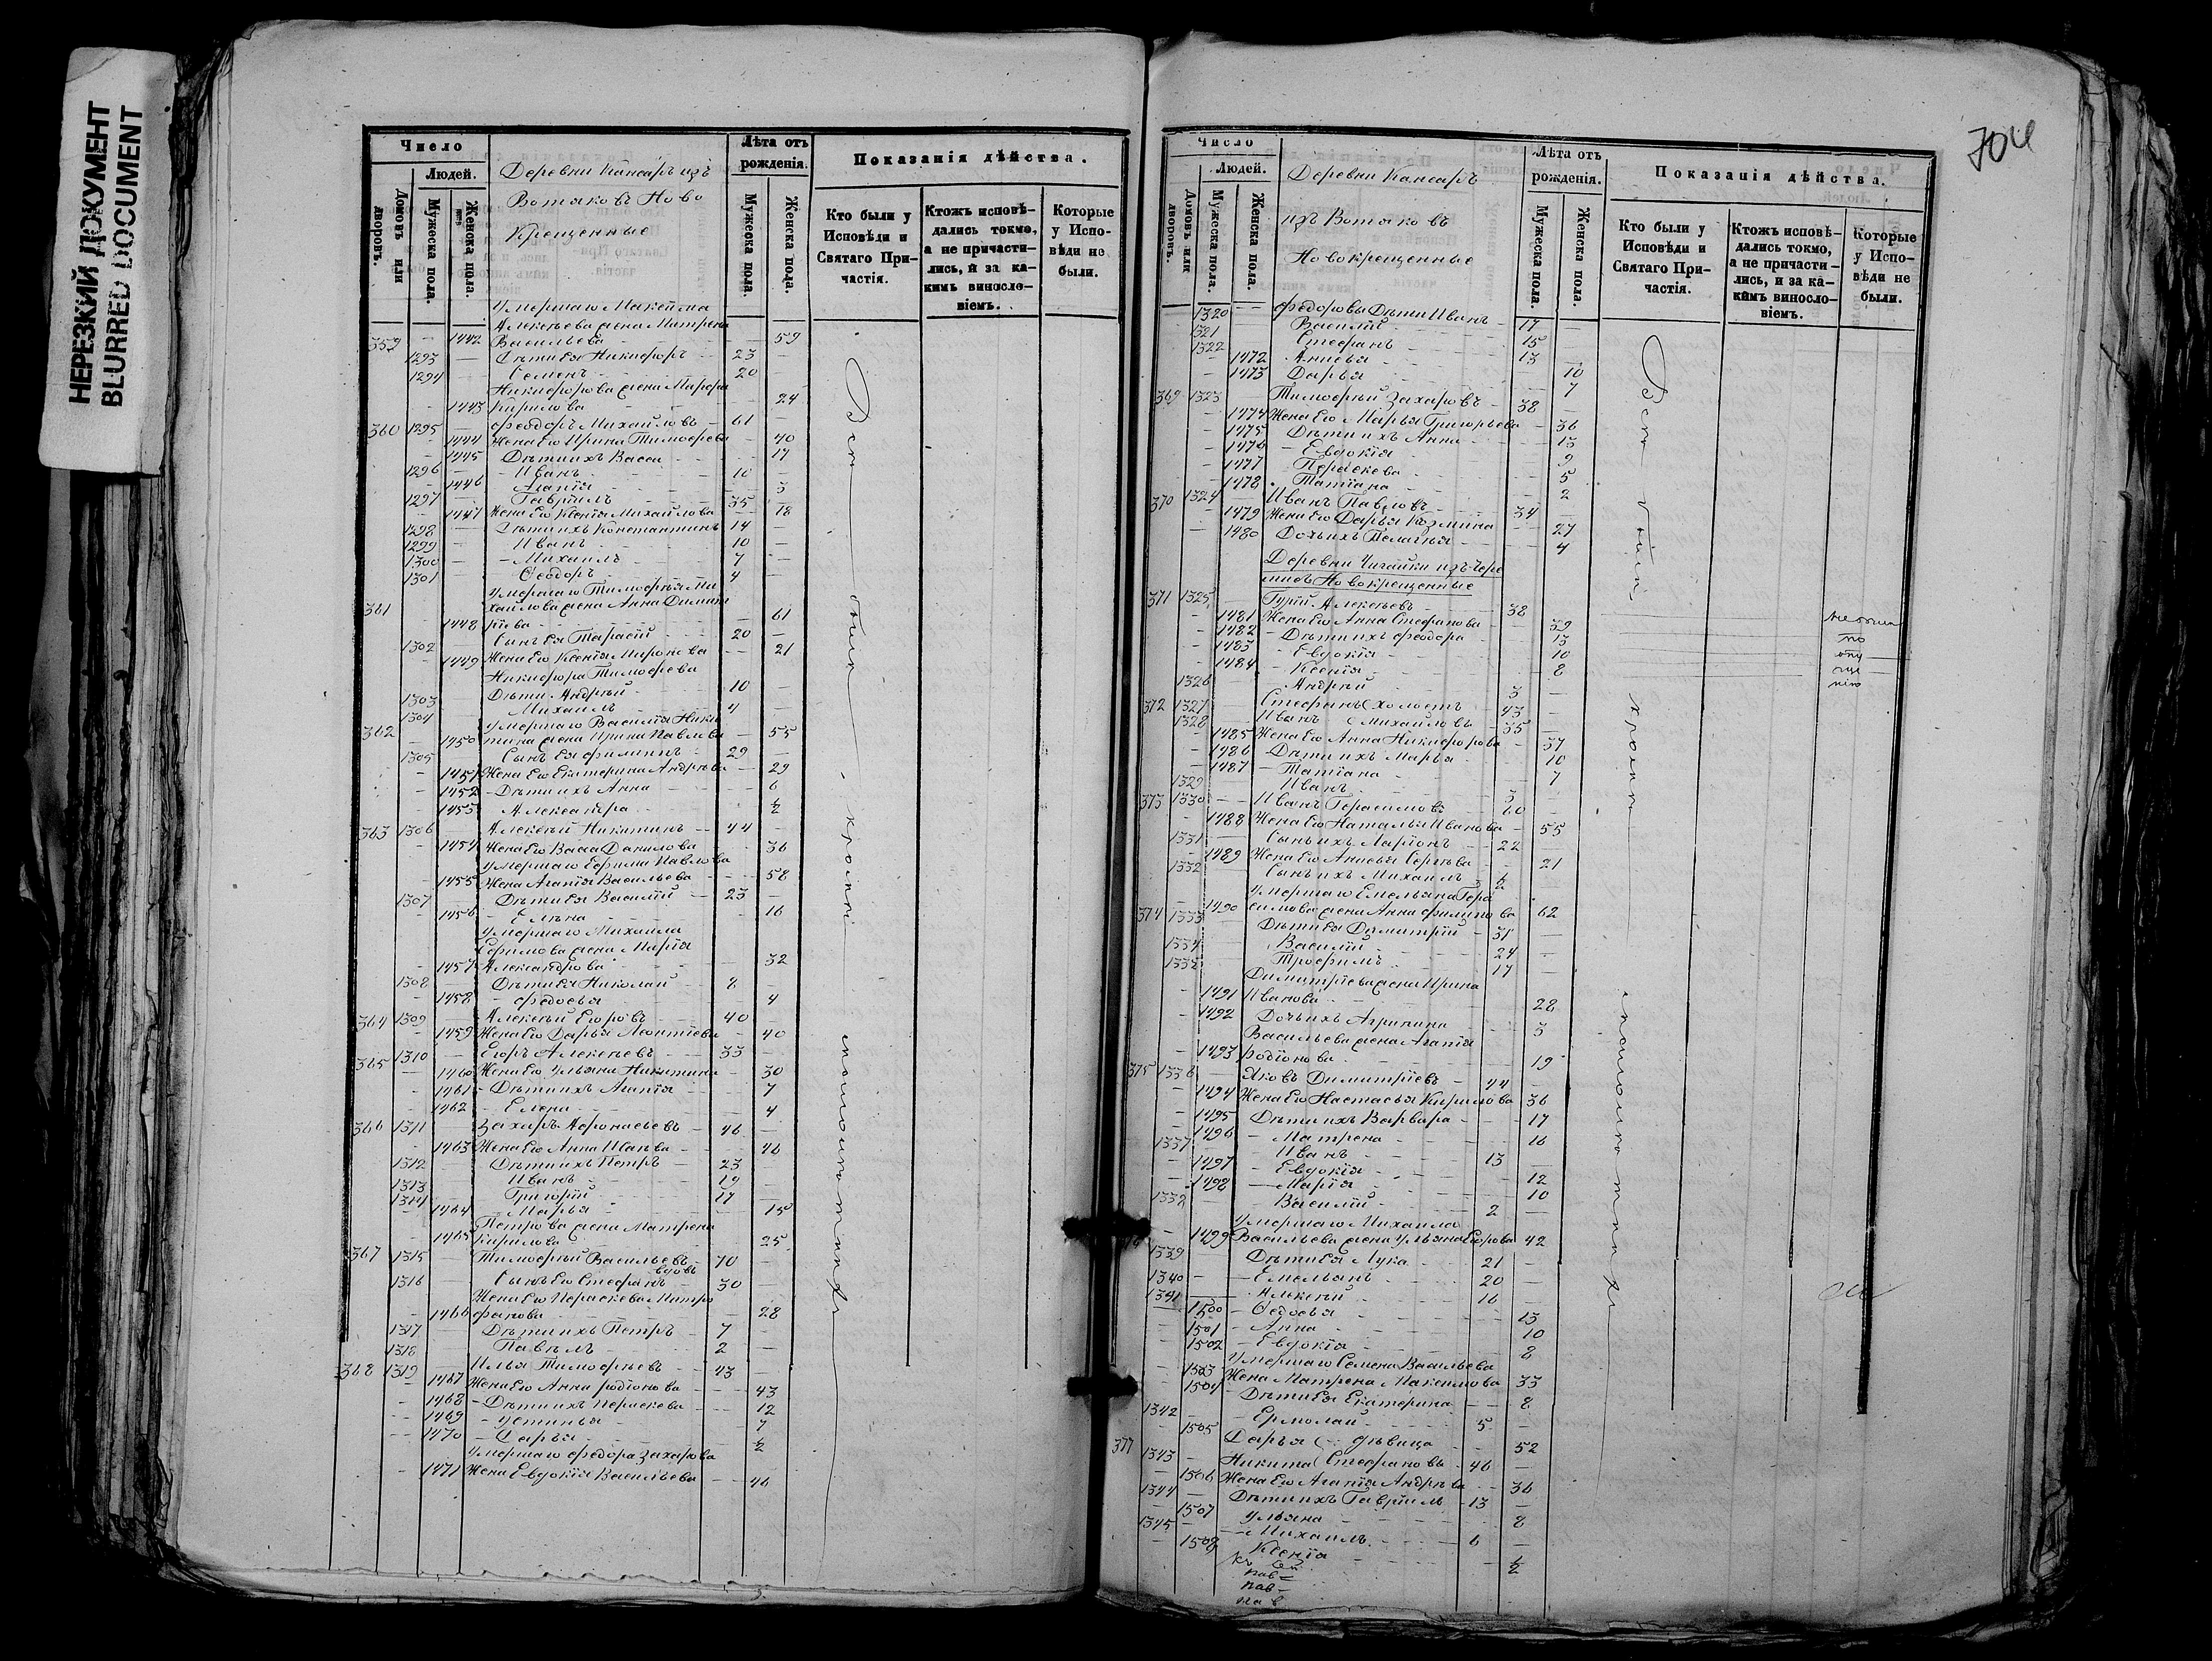 НЕРЕЗКИЙ ДОКУМЕНТ
BLURRED DOCUMENT
Число
Людей.
Домовъ или дворовъ.
Мужеска пола.
Женска пола.
Деревни Кансаръ изъ
Вотяковъ Ново
Крещенные
Лѣта отъ рожденія.
Мужеска пола.
Женска пола.
Показанія дѣйства.
Кто были у Исповѣди и Святаго Причастія.
Ктожъ исповѣдались токмо, а не причастились, и за какимъ винословіемъ.
Которые у Исповѣди не были.
Умершаго Максима
Алексѣева жена Матрена
359 1442 Васильева 59
1293 Дѣти ея Никифоръ 23
1294 Семенъ 20
Никифорова жена Марфа
1443 Кирилова 24
360 1295 Феодоръ Михайловъ 61
1444 Жена Его Ирина Тимофеева 40
1445 Дѣти ихъ Васса 17
1296 Иванъ 10
1446 Агапія 3
1297 Гавріилъ 35
1447 Жена Его Ксенія Михайлова 18
1298 Дѣти ихъ Константинъ 14
1299 Иванъ 10
1300 Михаилъ 7
1301 Ѳеодоръ 4
Умершаго Тимофѣя Ми
361 хайлова жена Анна Димит
1448 ріева 61
1302 Сынъ Ея Тарасій 20
1449 Жена Его Ксенія Миронова 21
Никифора Тимофеева
1303 Дѣти Андрей 10
1304 Михаилъ 4
Умершаго Василія Ники
362 1450 тина жена Ирина Павлова 55
1305 Сынъ Ея Филиппъ 29
1451 Жена Его Екатерина Андрѣева 29
1452 Дѣти ихъ Анна 6
1453 Александра 1/2
363 1306 Алексѣй Никитинъ 44
1454 Жена Его Васса Данилова 36
Умершаго Ефима Павлова
1455 Жена Агапія Васильева 58
1307 Дѣти Ея Василій 23
1456 Елена 16
Умершаго Михаила
Ефимова жена Марія
1457 Александрова 32
1308 Дѣти Ея Николай 8
1458 Федосья 4
364 1309 Алексѣй Егоровъ 40
1459 Жена Его Дарья Леонтіева 40
365 1310 Егоръ Алексѣевъ 33
1460 Жена Его Ульяна Никитина 30
1461 Дѣти ихъ Агапія 7
1462 Елена 4
366 1311 Захаръ Афонасьевъ 46
1463 Жена Его Анна Иванова 46
1312 Дѣти ихъ Петръ 23
1313 Иванъ 19
1314 Григорій 17
1464 Марья 15
Петрова жена Матрена
1465 Кирилова 25
367 1315 Тимофѣй Васильевъ вдовъ 70
1316 Сынъ Его Стефанъ 30
Жена Его Параскева Митро
1466 фанова 28
1317 Дѣти ихъ Петръ 7
1318 Павелъ 2
368 1319 Илья Тимофѣевъ 43
1467 Жена Его Анна Родіонова 43
1468 Дѣти ихъ Параскева 12
1469 Устинья 7
1470 Дарья 1/2
Умершаго Федора Захарова
1471 Жена Евдокія Васильева 46
Всѣ были
704
Число
Людей.
Домовъ или дворовъ.
Мужеска пола.
Женска пола.
Деревни Кансаръ
изъ Вотяковъ
Новокрещенные
Лѣта отъ рожденія.
Мужеска пола.
Женска пола.
Показанія дѣйства.
Кто были у Исповѣди и Святаго Причастія.
Ктожъ исповѣдались токмо, а не причастились, и за какимъ винословіемъ.
Которые у Исповѣди не были.
1320 Федоровы Дѣти Иванъ 17
1321 Василій 15
1322 Стефанъ 13
1472 Анисья 10
1473 Дарья 7
369 1323 Тимофѣй Захаровъ 38
1474 Жена Его Марья Григорьева 36
1475 Дѣти ихъ Анна 13
1476 Евдокія 9
1477 Параскева 5
1478 Татіана 2
370 1324 Иванъ Павловъ 34
1479 Жена Его Дарья Козмина 27
1480 Дочь ихъ Пелагья 4
Деревни Чигайки изъ Чере
мисъ Новокрещенные
371 1325 Гурій Алексѣевъ 38
1481 Жена Его Анна Стефанова 39
1482 Дѣти ихъ Феодора 13
1483 Евдокія 10
1484 Ксенія 8
1326 Андрей 3
не были
по
опу
ще
нію
372 1327 Стефанъ холостъ 43
1328 Иванъ Михайловъ 35
1485 Жена Его Анна Никифорова 37
1486 Дѣти ихъ Марья 10
1487 Татіана 7
1329 Иванъ 3
373 1330 Иванъ Герасимовъ 60
1488 Жена Его Наталья Иванова 55
1331 Сынъ ихъ Ларіонъ 22
1489 Жена Его Анисья Сергѣева 21
1332 Сынъ ихъ Михаилъ 1/2
Умершаго Емельяна Гера
374 1333 1490 симова жена Анна Филипова 62
Дѣти Ея Димитрій 31
1334 Василій 24
1335 Трофимъ 17
Димитріева жена Ирина
1491 Иванова 28
1492 Дочь ихъ Агрипина 3
Васильева жена Агапія
1493 Родіонова 19
375 1336 Яковъ Димитріевъ 44
1494 Жена Его Настасья Кирилова 36
1495 Дѣти ихъ Варвара 17
1496 Матрена 16
1337 Иванъ 13
1497 Евдокія 12
1498 Марія 10
1338 Василій 2
Умершаго Михаила
1499 Васильева жена Ульяна Егорова 42
1339 Дѣти Ея Лука 21
1340 Емельянъ 20
1341 Алексѣй 16
1500 Ѳедосья 13
1501 Анна 10
1502 Евдокія 8
Умершаго Семена Васильева
1503 Жена Матрена Максимова 33
1504 Дѣти Ея Екатерина 8
1342 Ермолай 5
1505 Дарья дѣвица 52
377 1343 Никита Стефановъ 46
1506 Жена Его Агапія Андрѣева 36
1344 Дѣти ихъ Гавріилъ 13
1507 Ульяна 8
1345 Михаилъ 6
1508 Ксенія 1/2
Всѣ были